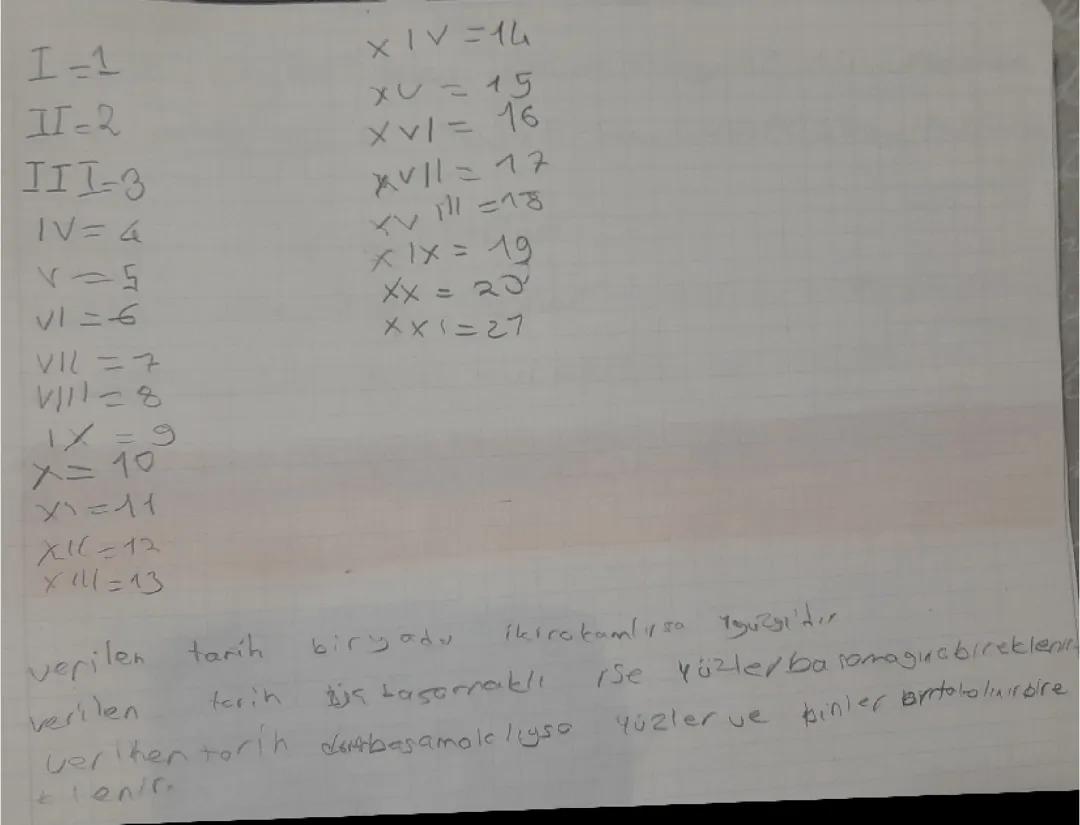 I=1
II=2
III=3
IV=4
V=5
VI=6
VII=7
VIII=8
IX=9
X=10
XI=11
XII=12
XIII=13
XIV=14
XV=15
XVI=16
XVII=17
XVIII=18
XIX=19
XX=20
XXI=21
verilen tarih bir yada iki rakamlıysa 1yüzyıl'dır
verilen tarih üç basamaklı ise yüzler basamağına bir eklenir
verilen tarih dört basamaklıysa yüzler ve binler bire
klenir.